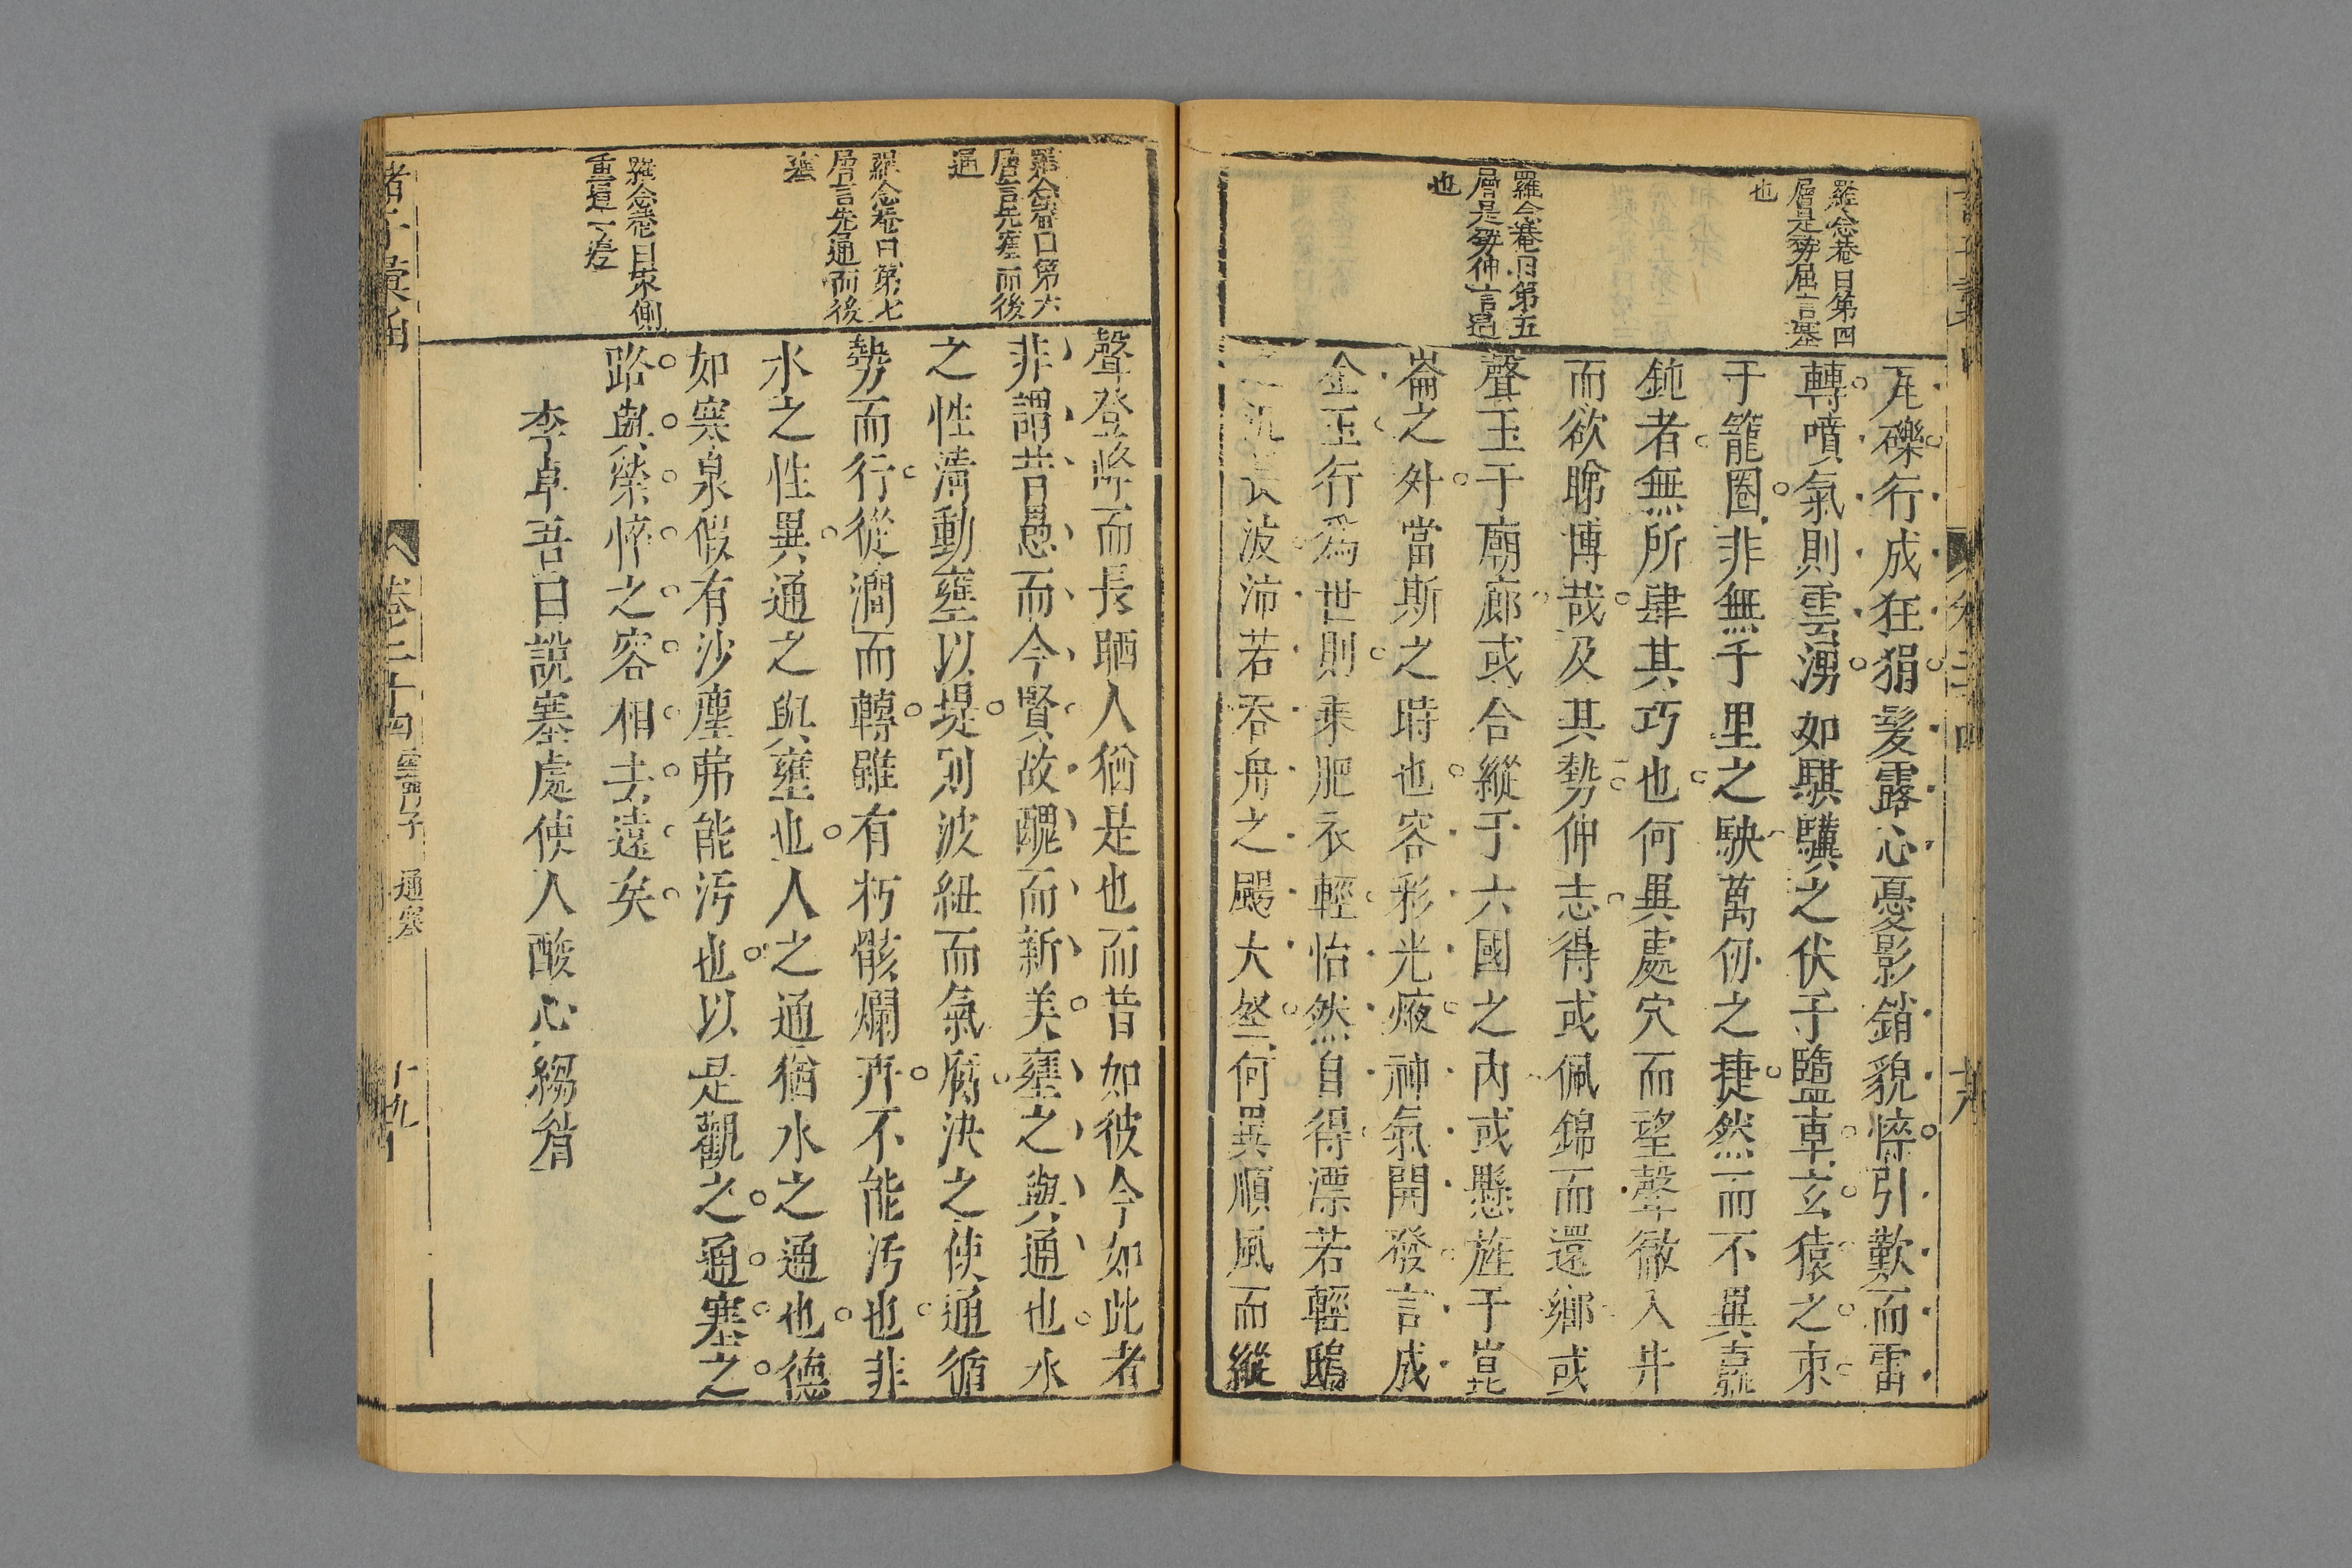 羅念菴曰第四
層是勢屈言塞
也
羅念菴曰第五
層是勢伸言通
也
瓦礫行成狂狷髮露心憂影銷貌悴引歎而雷
轉噴氣則雲湧如騏驥之伏于鹽車玄猿之束
于籠圈非無千里之駃萬仞之捷然而不異嬴
鈍者無所肆其巧也何異處穴而望聲徹入井
而欲睇博哉及其勢伸志得或佩錦而還鄉或
聲玉于廟廊或合縱于六國之內或懸旌于崑
崙之外當斯之時也容彩光液神氣開發言成
金玉行為世則乘肥衣輕怡然自得漂若輕鴟
汎長波沛若吞舟之颺大壑何異順風而縱
羅念菴曰第六
層言先塞而後
通
羅念菴曰第七
層言先通而後
塞
羅念菴曰末側
重通一邊
聲登峰而長眄人猶是也而昔如彼今如此者
非謂昔愚而今賢故醜而新美壅之與通也水
之性清動壅以堤則波紐而氣腐決之使通循
勢而行從澗而轉雖有朽骸爛卉不能汚也非
水之性異通之與壅也人之通猶水之通也德
如寒泉假有沙塵弗能汚也以是觀之通塞之
路與榮悴之容相去遠矣
李卓吾曰說塞處使人酸心縐眉
諸子彙函
卷二十四
雲門子
通塞
十九